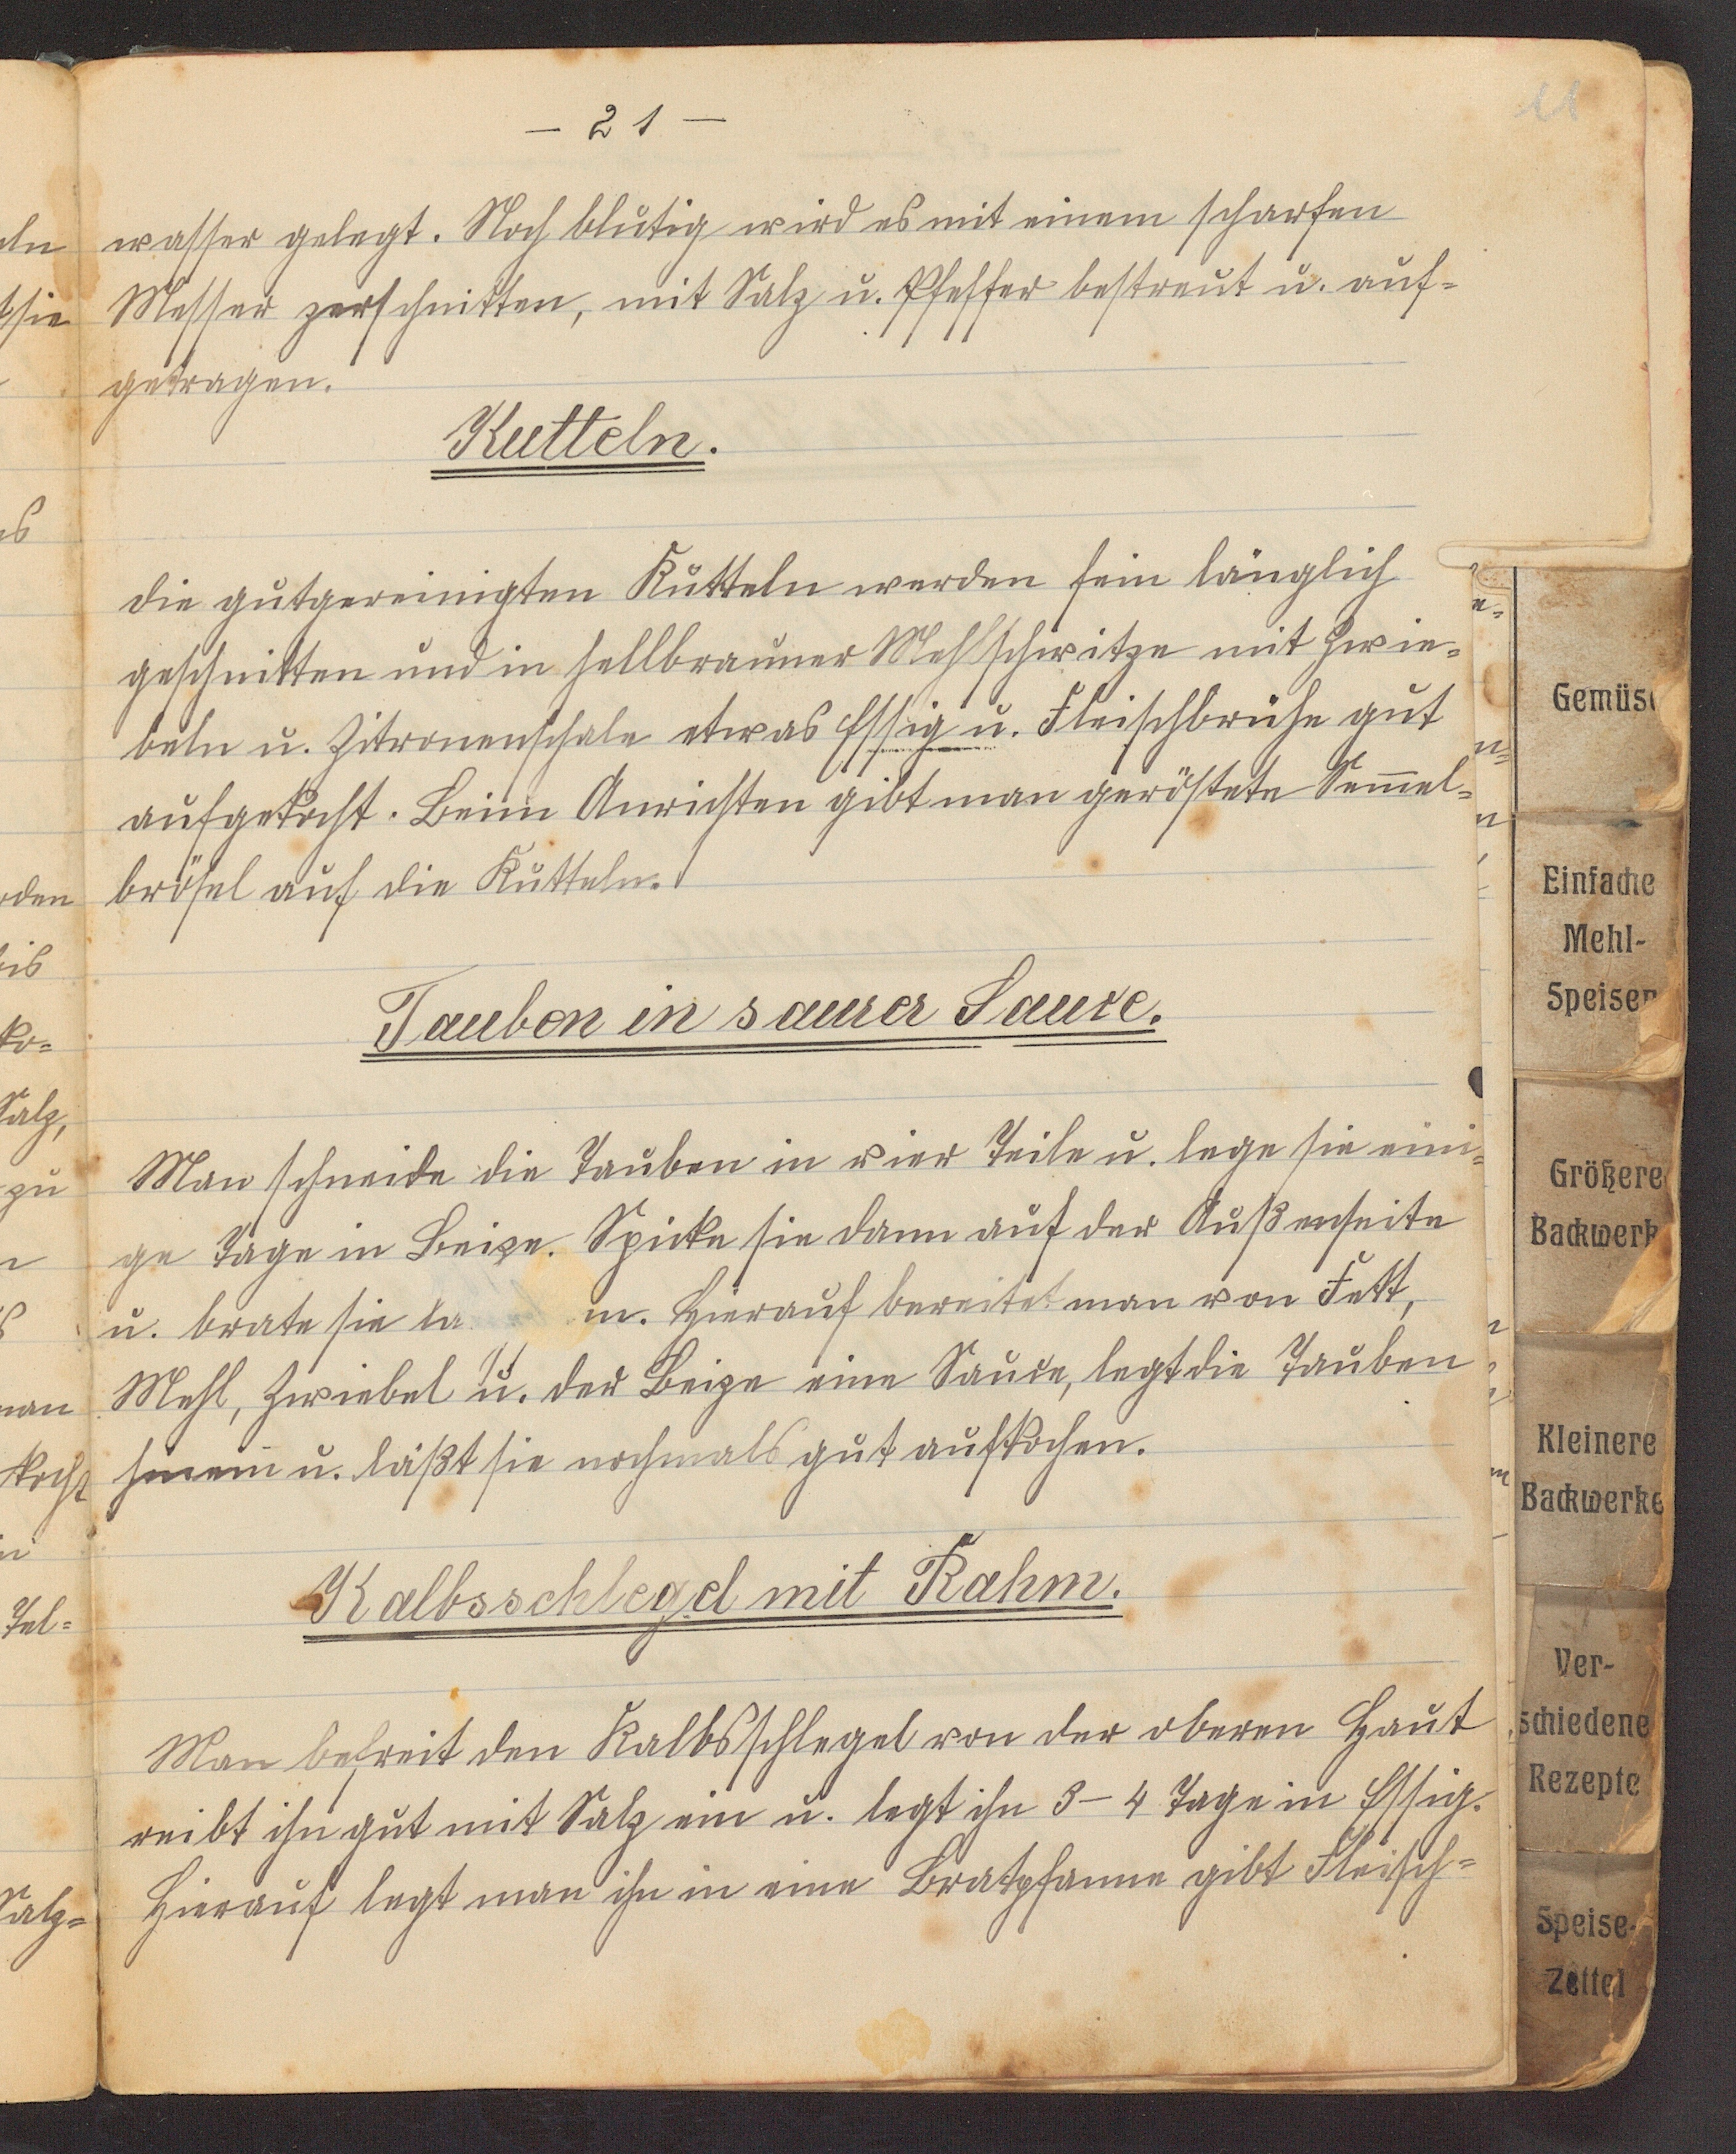 - 21 -
wasser gelegt. Noch blutig wird es mit einem scharfen
Messer zerschnitten, mit Salz u. Pfeffer bestreut u. auf-
getragen.
Kutteln.
die gutgereinigten Kutteln werden fein länglich
geschnitten und in hellbrauner Mehlschwitze mit Zwie-
beln u. Zitronenschale etwas Essig u. Fleischbrühe gut
aufgekocht. Beim Anrichten gibt man geröstete Sem̄el-
brösel auf die Kutteln.
Tauben in saurer Sauce.
Man schneide die Tauben in vier Teile u. lege sie eini-
ge Tage in Beize. Spicke sie dann auf der Außenseite
u. brate sie m. Hierauf bereitet man von Fett,
Mehl, Zwiebel u. der Beize eine Sauce, legt die Tauben
hinein u. läßt sie nochmals gut aufkochen.
Kalbsschlegel mit Rahm.
Man befreit den Kalbsschlegel von der oberen Haut
reibt ihn gut mit Salz ein u. legt ihn 3-4 Tage in Essig.
Hierauf legt man ihn in eine Bratpfanne gibt Fleisch-
eln
sie
es
rden
bis
ko-
Salz,
zu
man
kocht
Tel-
Salz-
Gemüse
Einfache
Mehl-
Speisen
Größere
Backwerk
Kleinere
Backwerke
Ver-
schiedene
Rezepte
Speise-
Zettel